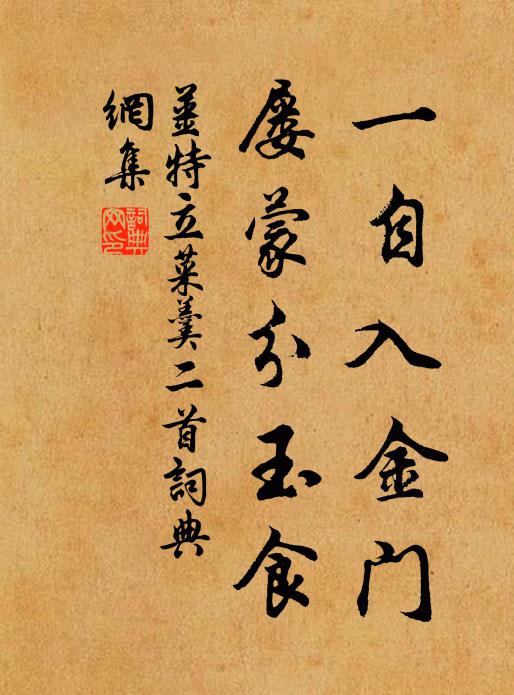 一自入金门
屢蒙分玉食
薑特立菜羹二首詞典
網集
詞典
网印